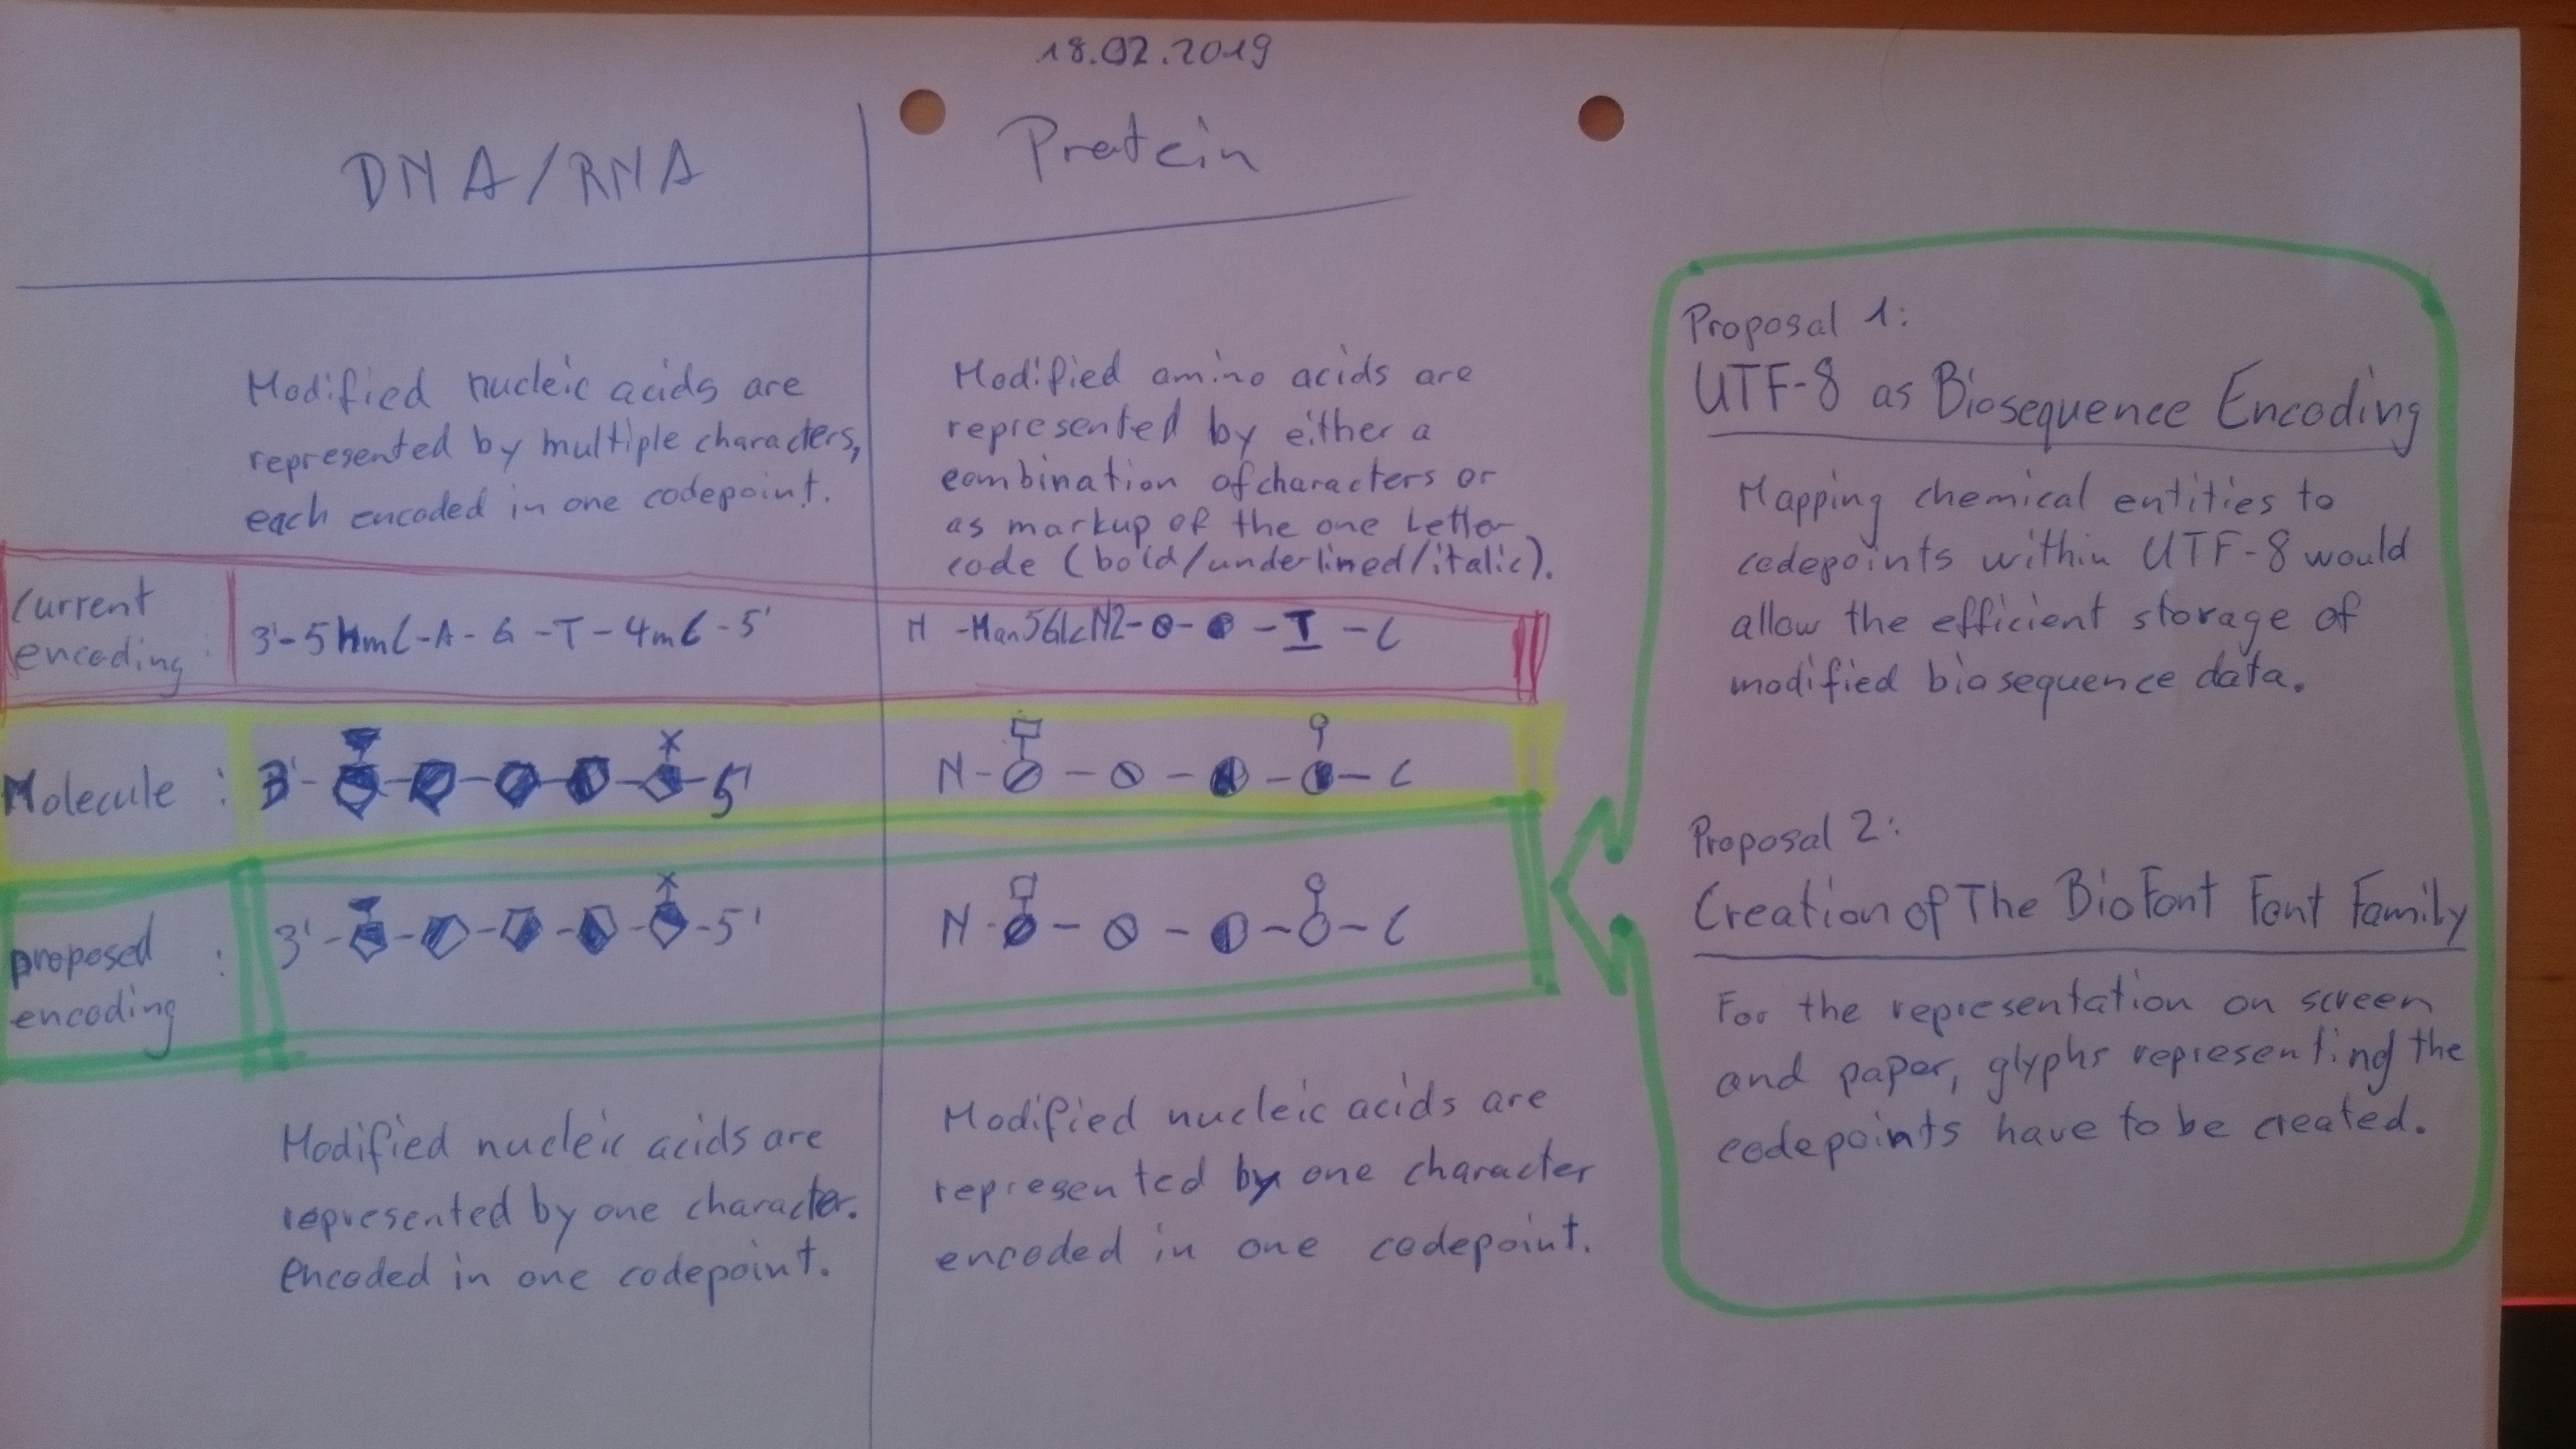 18.02.2019
DNA/RNA
Protein
Modified nucleic acids are
represented by multiple characters,
each encoded in one codepoint.
Modified amino acids are
represented by either a
combination of characters or
as markup of the one letter
code (bold/underlined/italic).
Current
encoding :
3'-5hmC-A-G-T-4mC-5'
N -Man5GlcN2- - -I-C
Molecule :
3'- -5'
N- - - - -C
proposed
encoding :
3'- -5'
N- - - - -C
Modified nucleic acids are
represented by one character.
encoded in one codepoint.
Modified nucleic acids are
represented by one character
encoded in one codepoint.
Proposal 1:
UTF-8 as Biosequence Encoding
Mapping chemical entities to
codepoints within UTF-8 would
allow the efficient storage of
modified biosequence data.
Proposal 2:
Creation of The BioFont Font Family
For the representation on screen
and paper, glyphs representing the
codepoints have to be created.